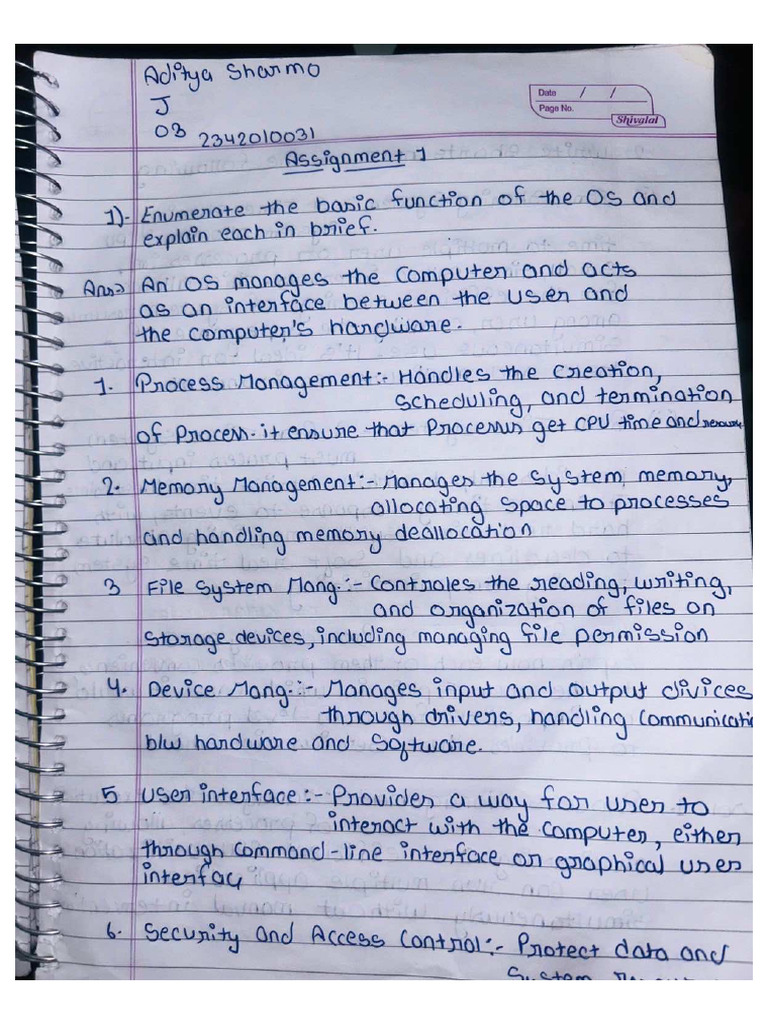 Aditya Sharma
J
03 2342010031
Date / /
Page No.
Shivalal
Assignment 1
1)- Enumerate the basic function of the OS and
explain each in brief.
Ans→ An OS manages the computer and acts
as an interface between the user and
the computer's hardware.
1. Process Management:- Handles the creation,
scheduling, and termination
of Process. it ensure that Processus get CPU time and
2. Memory Management:- Manages the system, memory,
allocating space to processes
and handling memory deallocation
3 File System Mang.:- Controles the reading, writing,
and organization of files on
Storage devices, including managing file permission
4. Device Mang.:- Manages input and output divices
through drivers, handling communicati
b/w hardware and Software.
5 User interface:- Provides a way for user to
interact with the computer, either
through command-line interface or graphical user
interfac
6. Security and Access Control:- Protect data and
System